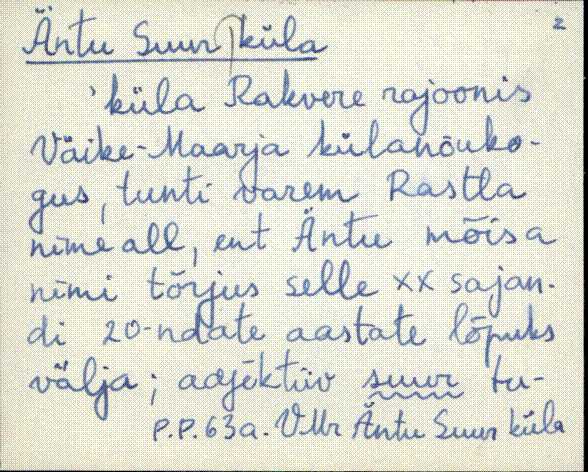 2
Äntu Suur küla
'küla Rakvere rajoonis
Väike-Maarja külanõuko-
gus, tunti varem Rastla
nime all, ent Äntu mõisa
nimi tõrjus selle XX sajan-
di 20-ndate aastate lõpuks
välja; adjektiiv suur tu-
P.P.63a. VMr Äntu Suur küla